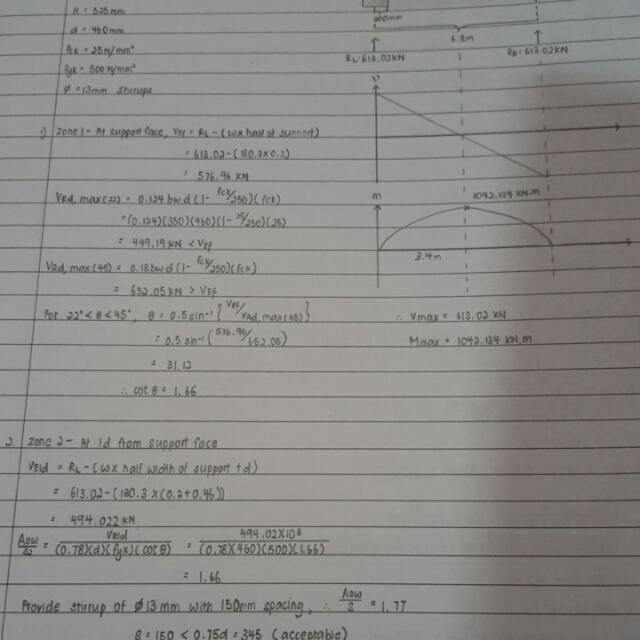 H = 525mm
d = 460mm
fck = 25 N/mm²
fyk = 500 N/mm²
Ø = 13mm stirrups
200mm
6.8m
RL = 613.02KN
RB = 613.02 KN
V
1) Zone 1 - At support face, VEf = RL - (w x half of support)
= 613.02 - (180.3 x 0.2)
= 576.96 KN
VRd, max (22) = 0.124 bw d (1 - fck/250)(fck)
= (0.124)(350)(460)(1 - 25/250)(25)
= 449.19 KN < VEf
VRd, max (45) = 0.18 bw d (1 - fck/250)(fck)
= 652.05 KN > VEf
For 22° < θ < 45°, θ = 0.5 sin⁻¹ { VEf/VRd, max (45) }
= 0.5 sin⁻¹ ( 576.96/652.05 )
= 31.12
∴ cot θ = 1.66
m
1042.134 KN.m
3.4m
∴ Vmax = 613.02 KN
Mmax = 1042.134 KN.m
2. Zone 2 - At 1d from support face
VEId = RL - (w x half width of support + d)
= 613.02 - (180.3 x (0.2 + 0.46))
= 494.022 KN
Asw/s = VEId/(0.78)(d)(fyk)(cot θ) = 494.02 x 10³/(0.78)(460)(500)(1.66)
= 1.66
Provide stirrup of Ø 13 mm with 150mm spacing, ∴ Asw/s = 1.77
S = 150 < 0.75d = 345 (acceptable)